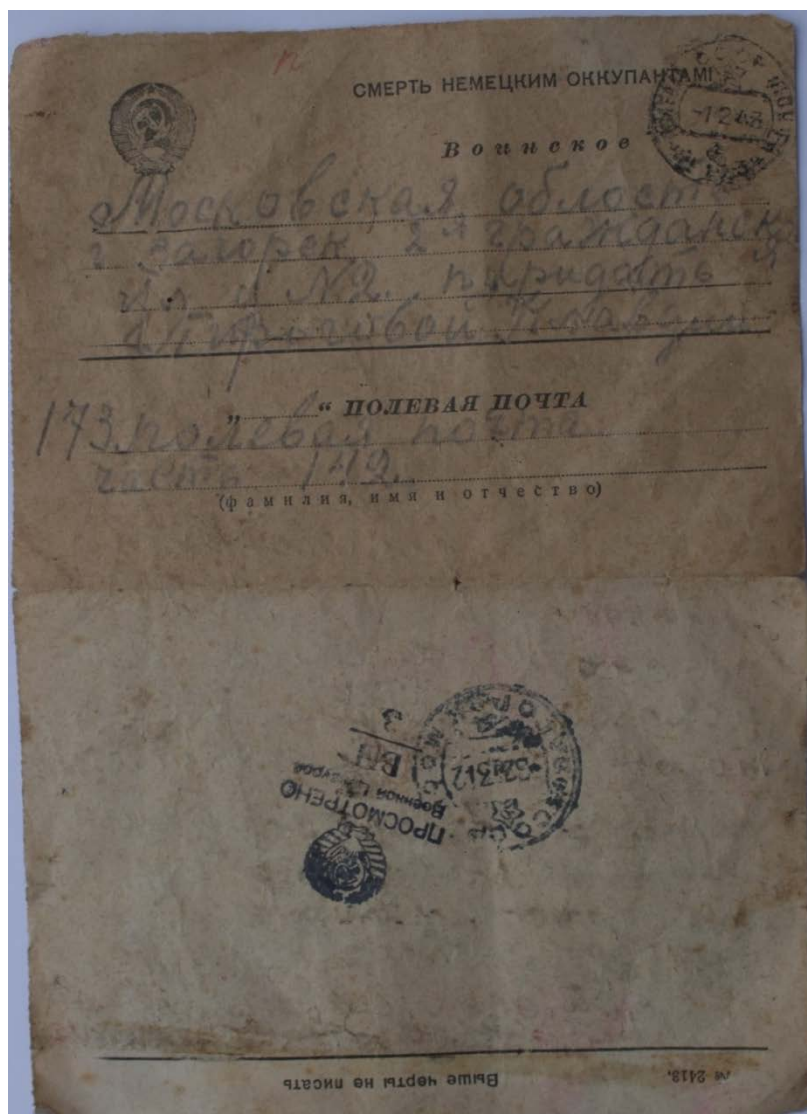 СМЕРТЬ НЕМЕЦКИМ ОККУПАНТАМ!
Воинское
Московская область
г Загорск 2я гражданск
ул д №2. пиридать
Пироговой Клавдии
„ “ ПОЛЕВАЯ ПОЧТА
173 полевая почта
часть 142.
(фамилия, имя и отчество)
3
ВЦ
ПРОСМОТРЕНО
Военной Цензурой
Выше черты не писать
№ 2413.